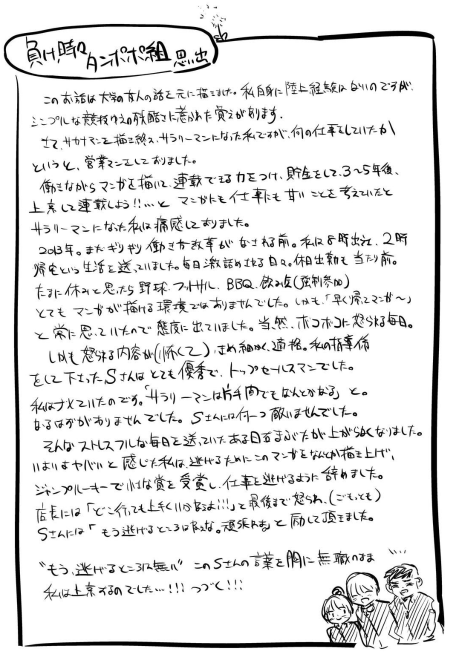 負け時のタンポポ組 思い出
このお話は大学の友人の話を元に描きました。私自身に陸上経験はないのですが、
シンプルな競技ゆえの残酷さに惹かれた覚えがあります。
さて、サカナマンを描き終え、サラリーマンになった私ですが、何の仕事をしていたか
というと、営業マンをしておりました。
働きながらマンガを描いて、連載できる力をつけ、貯金をして、3〜5年後、
上京して連載しよう!!…と マンガにも仕事にも甘いことを考えていたと
サラリーマンになった私は痛感しておりました。
2013年。まだギリギリ働き方改革がなされる前。私は8時出社、2時
帰宅という生活を送っていました。毎日激詰めされる日々。休日出勤も当たり前。
たまに休みと思ったら野球、フットサル、BBQ、飲み会(強制参加)
とてもマンガが描ける環境ではありませんでした。しかも「早く帰ってマンガ〜」
と常に思っていたので態度に出ていました。当然、ボコボコに怒られる毎日。
しかも怒られる内容が(怖くて)、きめ細かく、適格。私の指導係
をして下さったSさんはとても優秀で、トップセールスマンでした。
私はナメていたのです。「サラリーマンは片手間でもなんとかなる」と。
なるはずがありませんでした。Sさんには何一つ敵いませんでした。
そんなストレスフルな毎日を送っていたある日まぶたが上がらなくなりました。
いよいよヤバいと感じた私は、逃げるためにこのマンガをなんとか描き上げ、
ジャンプルーキーで小さな賞を受賞し、仕事を逃げるように辞めました。
店長には「どこ行っても上手くいかねえよ!!!」と最後まで怒られ、(ごもっとも)
Sさんには「もう逃げるところはねえな。頑張れよ」と励して頂きました。
"もう、逃げるところは無い" このSさんの言葉を胸に無職のまま
私は上京するのでした…!!! つづく!!!